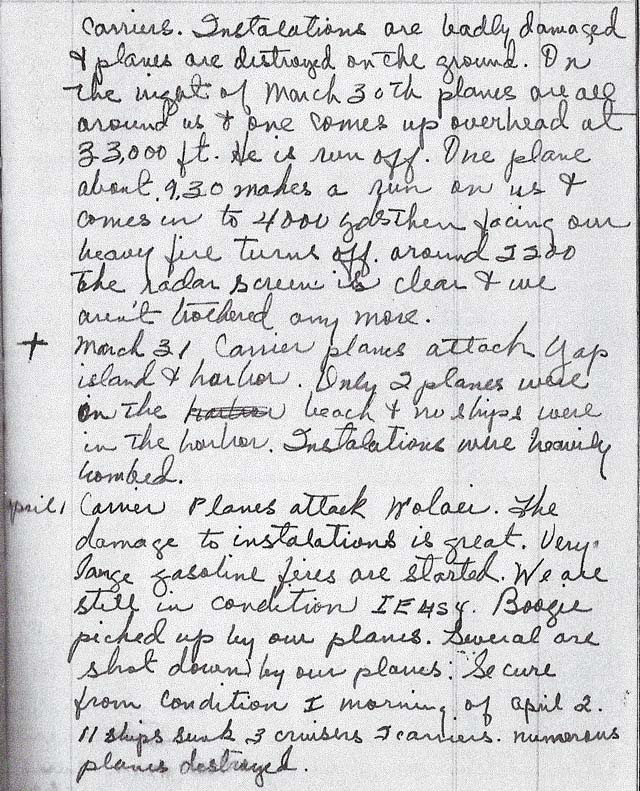 carriers. Instalations are badly damaged
& planes are distroyed on the ground. On
the night of March 30th planes are all
around us & one comes up overhead at
33,000 ft. He is run off. One plane
about 9,30 makes a run on us &
comes in to 4000 yds then facing our
heavy fire turns off. around 2200
the radar screen is clear & we
aren't bothered any more.
+ March 31 Carrier planes attack Yap
island & harbor. Only 2 planes were
on the harbor beach & no ships were
in the harbor. Instalations were heavily
bombed.
April 1 Carrier Planes attack Wolaei. The
damage to instalations is great. Very
large gasoline fires are started. We are
still in condition I Easy. Boogie
picked up by our planes. Several are
shot down by our planes. Secure
from condition I morning of april 2.
11 ships sunk 3 cruisers 2 carriers. numerous
planes destroyed.